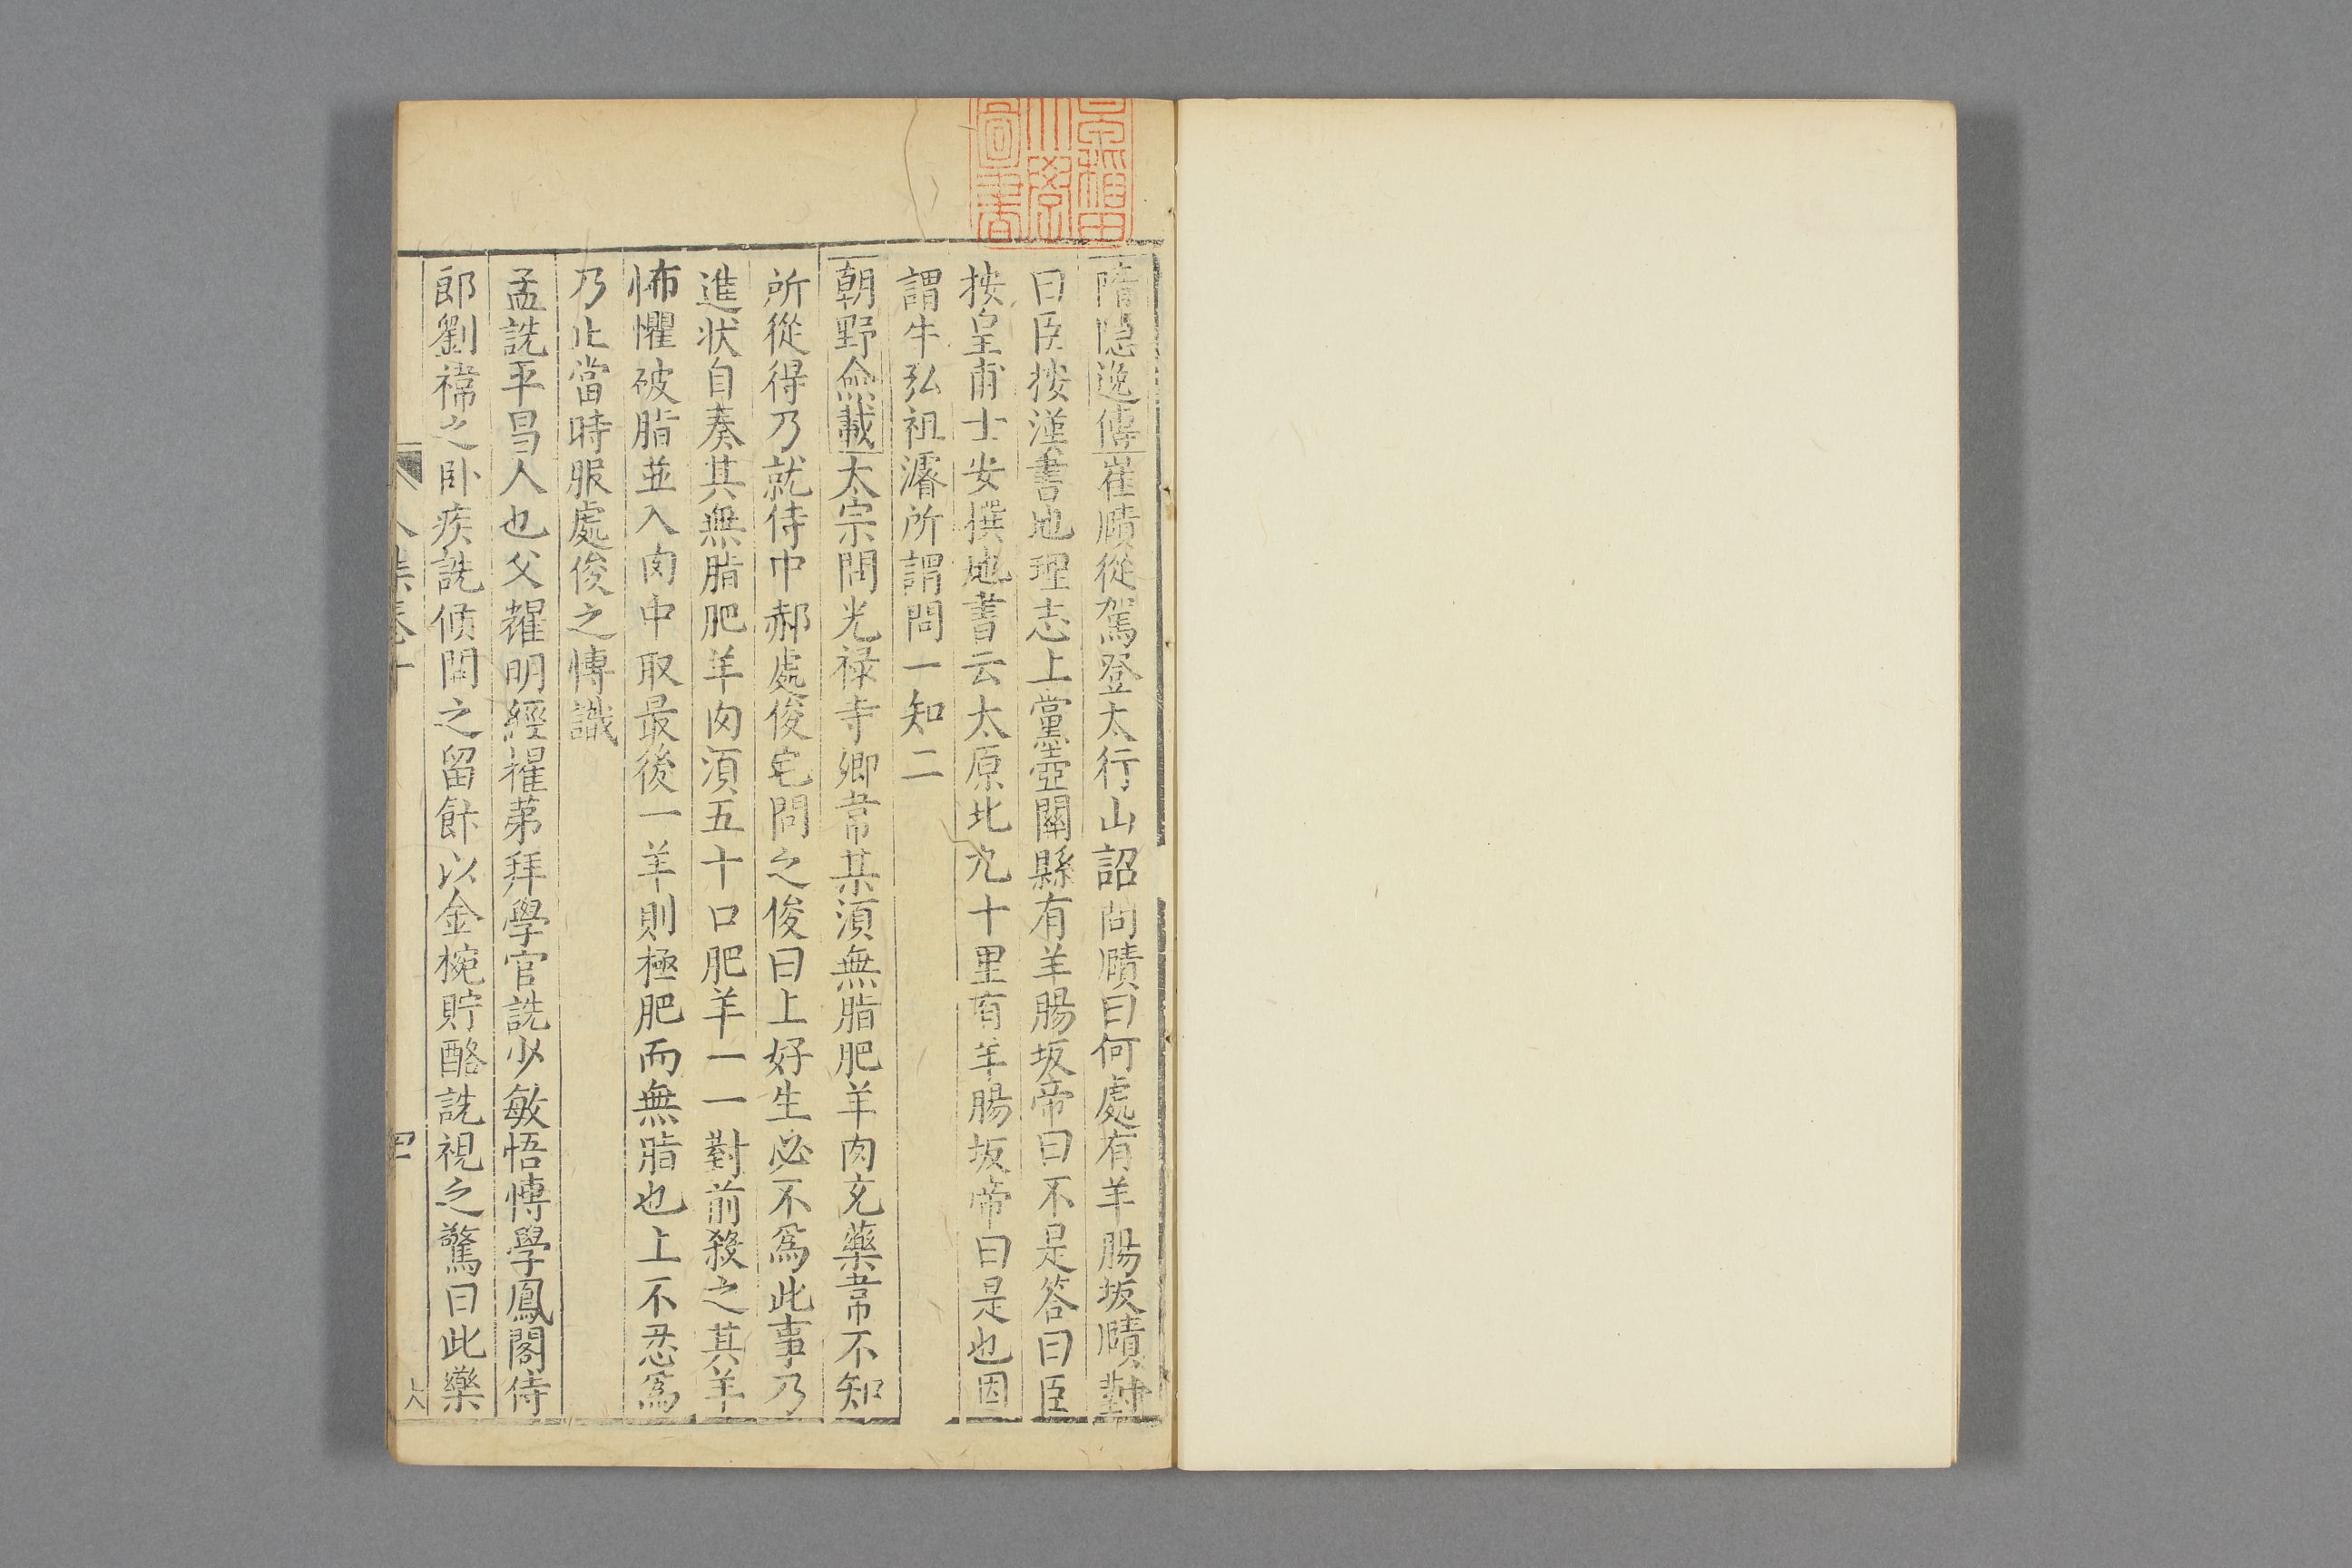 隋隠逸傳崔賾從駕登太行山詔問賾曰何處有羊腸坂賾對
曰臣按漢書地理志上黨壺關縣有羊腸坂帝曰不是答曰臣
按皇甫士安撰地書云太原北九十里有羊腸坂帝曰是也因
謂牛弘祖濬所謂問一知二
朝野僉載太宗問光禄寺卿韋某湏無脂肥羊肉充藥韋不知
所從得乃就侍中郝處俊宅問之俊曰上好生必不為此事乃
進状自奏其無脂肥羊肉湏五十口肥羊一一對前殺之其羊
怖懼破脂並入肉中取最後一羊則極肥而無脂也上不忍為
乃止當時服處俊之愽識
孟詵平昌人也父曜明經擢第拜學官詵少敏悟愽學鳳閣侍
郎劉禕之卧疾詵候問之留飰以金椀貯酪詵視之驚曰此藥